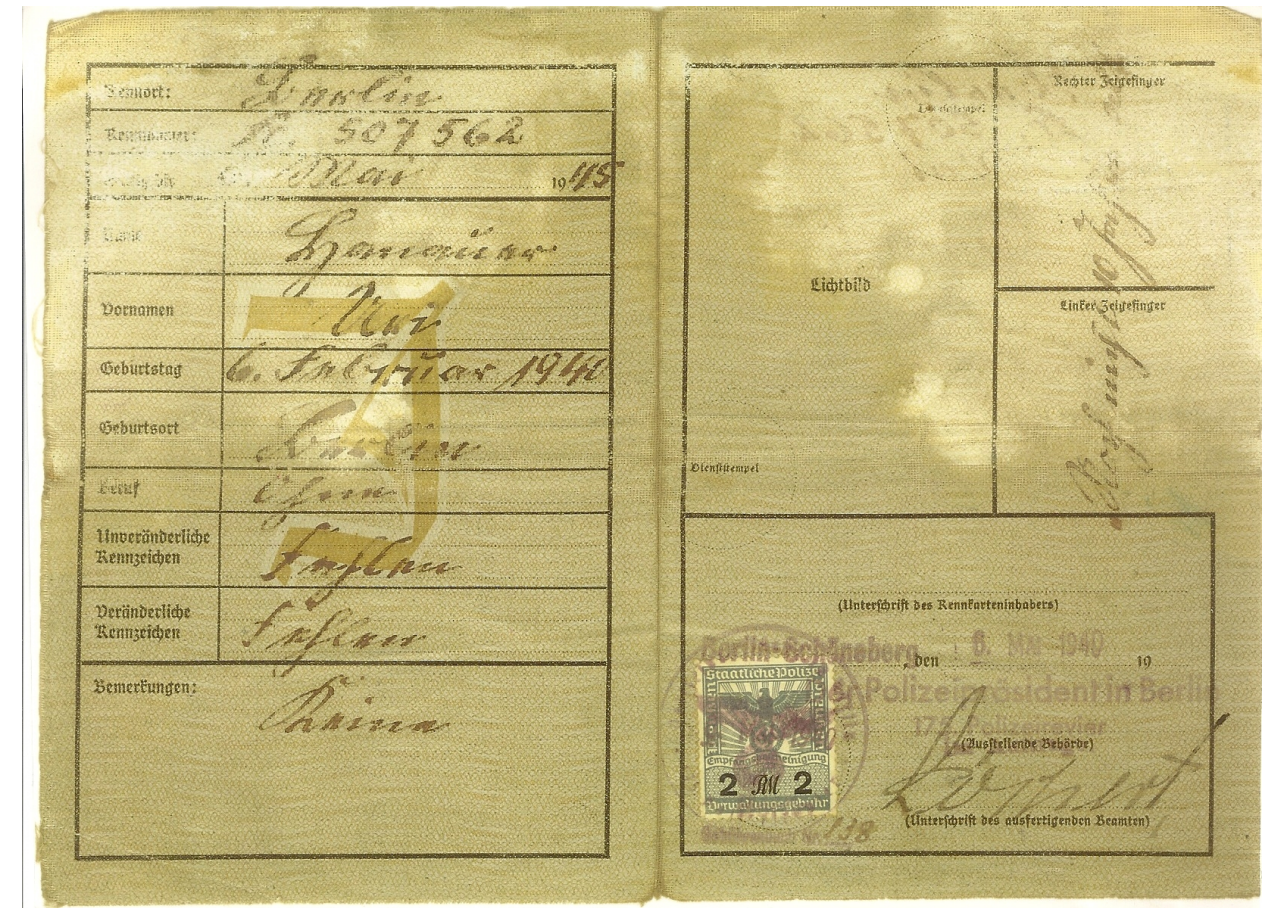 Kennort: Berlin
Kennummer: A. 507562
Gültig bis Mai 1945
Name Hanauer
Vornamen Uri
Geburtstag 6. Februar 1940
Geburtsort Berlin
Beruf Ohne
Unveränderliche
Kennzeichen Fehlen
Veränderliche
Kennzeichen Fehlen
Bemerkungen: Keine
J
Dienststempel
Rechter Zeigefinger
Lichtbild
Linker Zeigefinger
Dienststempel
(Unterschrift des Kennkarteninhabers)
Berlin-Schöneberg, den 6. Mai 1940 19
Der Polizeipräsident in Berlin
Polizeirevier
(Ausstellende Behörde)
(Unterschrift des ausfertigenden Beamten)
Staatliche Polizei
Empfangsbescheinigung
2 RM 2
Verwaltungsgebühr
138